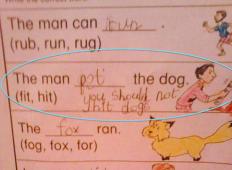 The man can run .
(rub, run, rug)
The man pat the dog.
(fit, hit) you should not
hit dogs
The fox ran.
(fog, fox, for)